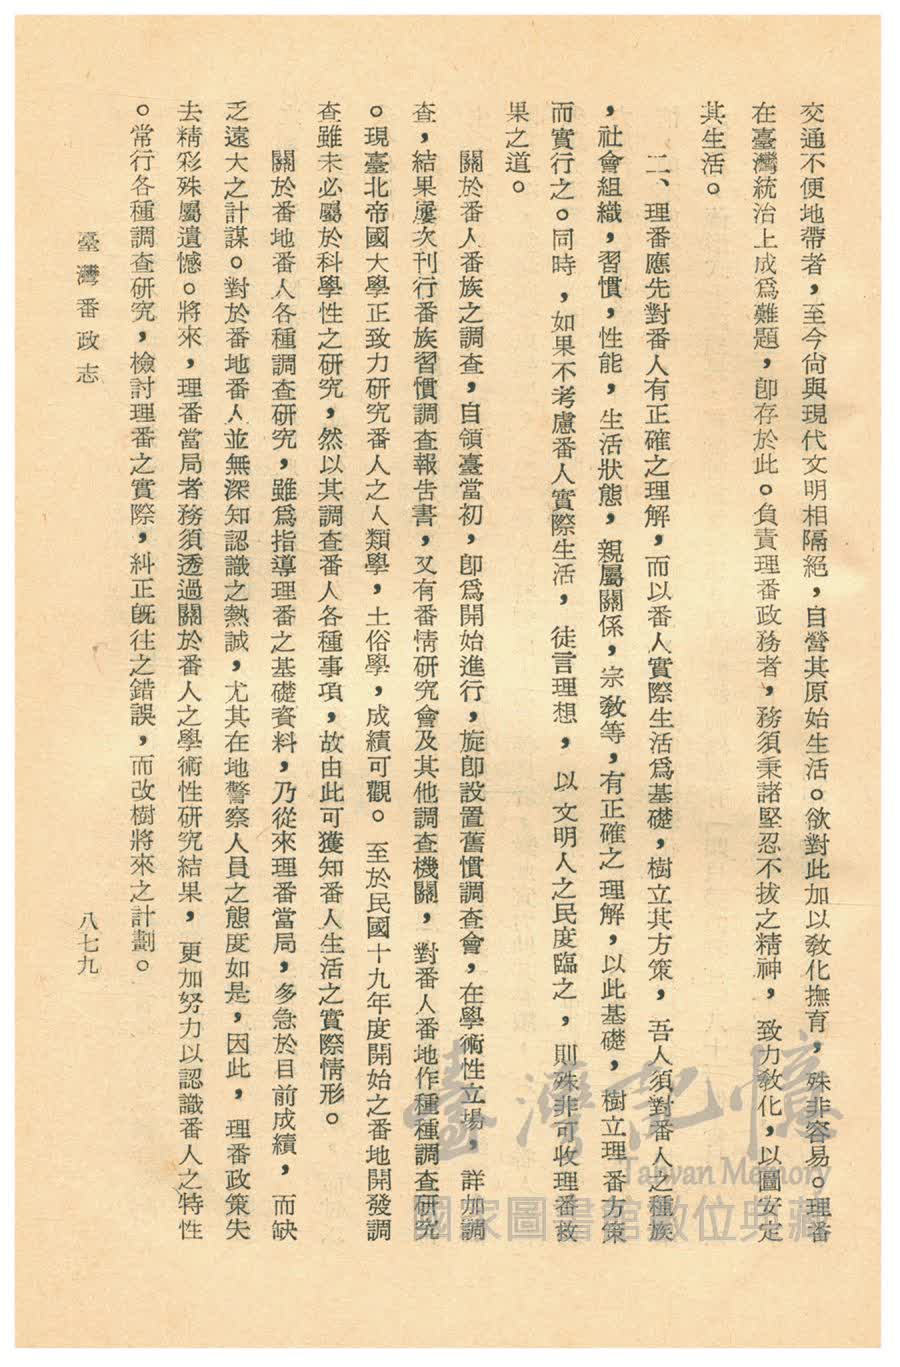 交通不便地帶者，至今尙與現代文明相隔絕，自營其原始生活。欲對此加以敎化撫育，殊非容易。理番
在臺灣統治上成爲難題，卽存於此。負責理番政務者，務須秉諸堅忍不拔之精神，致力敎化，以圖安定
其生活。
二、理番應先對番人有正確之理解，而以番人實際生活爲基礎，樹立其方策，吾人須對番人之種族
，社會組織，習慣，性能，生活狀態，親屬關係，宗敎等，有正確之理解，以此基礎，樹立理番方策
而實行之。同時，如果不考慮番人實際生活，徒言理想，以文明人之民度臨之，則殊非可收理番效
果之道。
關於番人番族之調查，自領臺當初，卽爲開始進行，旋卽設置舊慣調查會，在學術性立場，詳加調
查，結果屢次刊行番族習慣調查報告書，又有番情研究會及其他調查機關，對番人番地作種種調查研究
。現臺北帝國大學正致力研究番人之人類學，土俗學，成績可觀。至於民國十九年度開始之番地開發調
查雖未必屬於科學性之研究，然以其調查番人各種事項，故由此可獲知番人生活之實際情形。
關於番地番人各種調查研究，雖爲指導理番之基礎資料，乃從來理番當局，多急於目前成績，而缺
乏遠大之計謀。對於番地番人並無深知認識之熱誠，尤其在地警察人員之態度如是，因此，理番政策失
去精彩殊屬遺憾。將來，理番當局者務須透過關於番人之學術性研究結果，更加努力以認識番人之特性
。常行各種調查研究，檢討理番之實際，糾正旣往之錯誤，而改樹將來之計劃。
臺灣番政志
八七九
臺灣記憶
Taiwan Memory
國家圖書館數位典藏